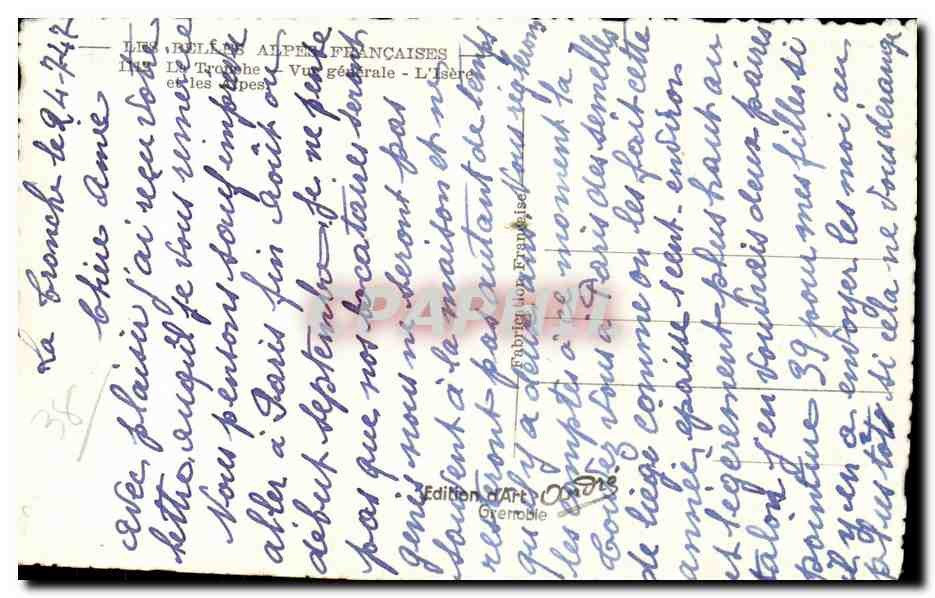 LES BELLES ALPES FRANÇAISES
1113 La Tronche - Vue générale - L'Isère
et les Alpes
Fabrication Française
Edition d'Art André
Grenoble
CPAPHIL
38
La Tronche le 24-7-47
Chère amie
avec plaisir j'ai reçu votre
lettre enquil je vous remercie
Nous pensons sauf imprévu
aller à Paris fin Août ou
début septembre. Je ne pense
pas que nos locataires seront
genés nous ne seront pas
souvent à la maison et ne
resteront pas autant de temps
qu'il y a deux ans. Vous seg leurs
les comptes à ce moment la
Trouvez vous à Paris des semelles
de liège comme on les fait cette
année, épaisse seent. environ
et légèrement plus haut au
talon j'en voudrais deux paires
pointure 39 pour mes filles si
il y en a envoyer les moi au
plus tôt si cela ne vous dérange